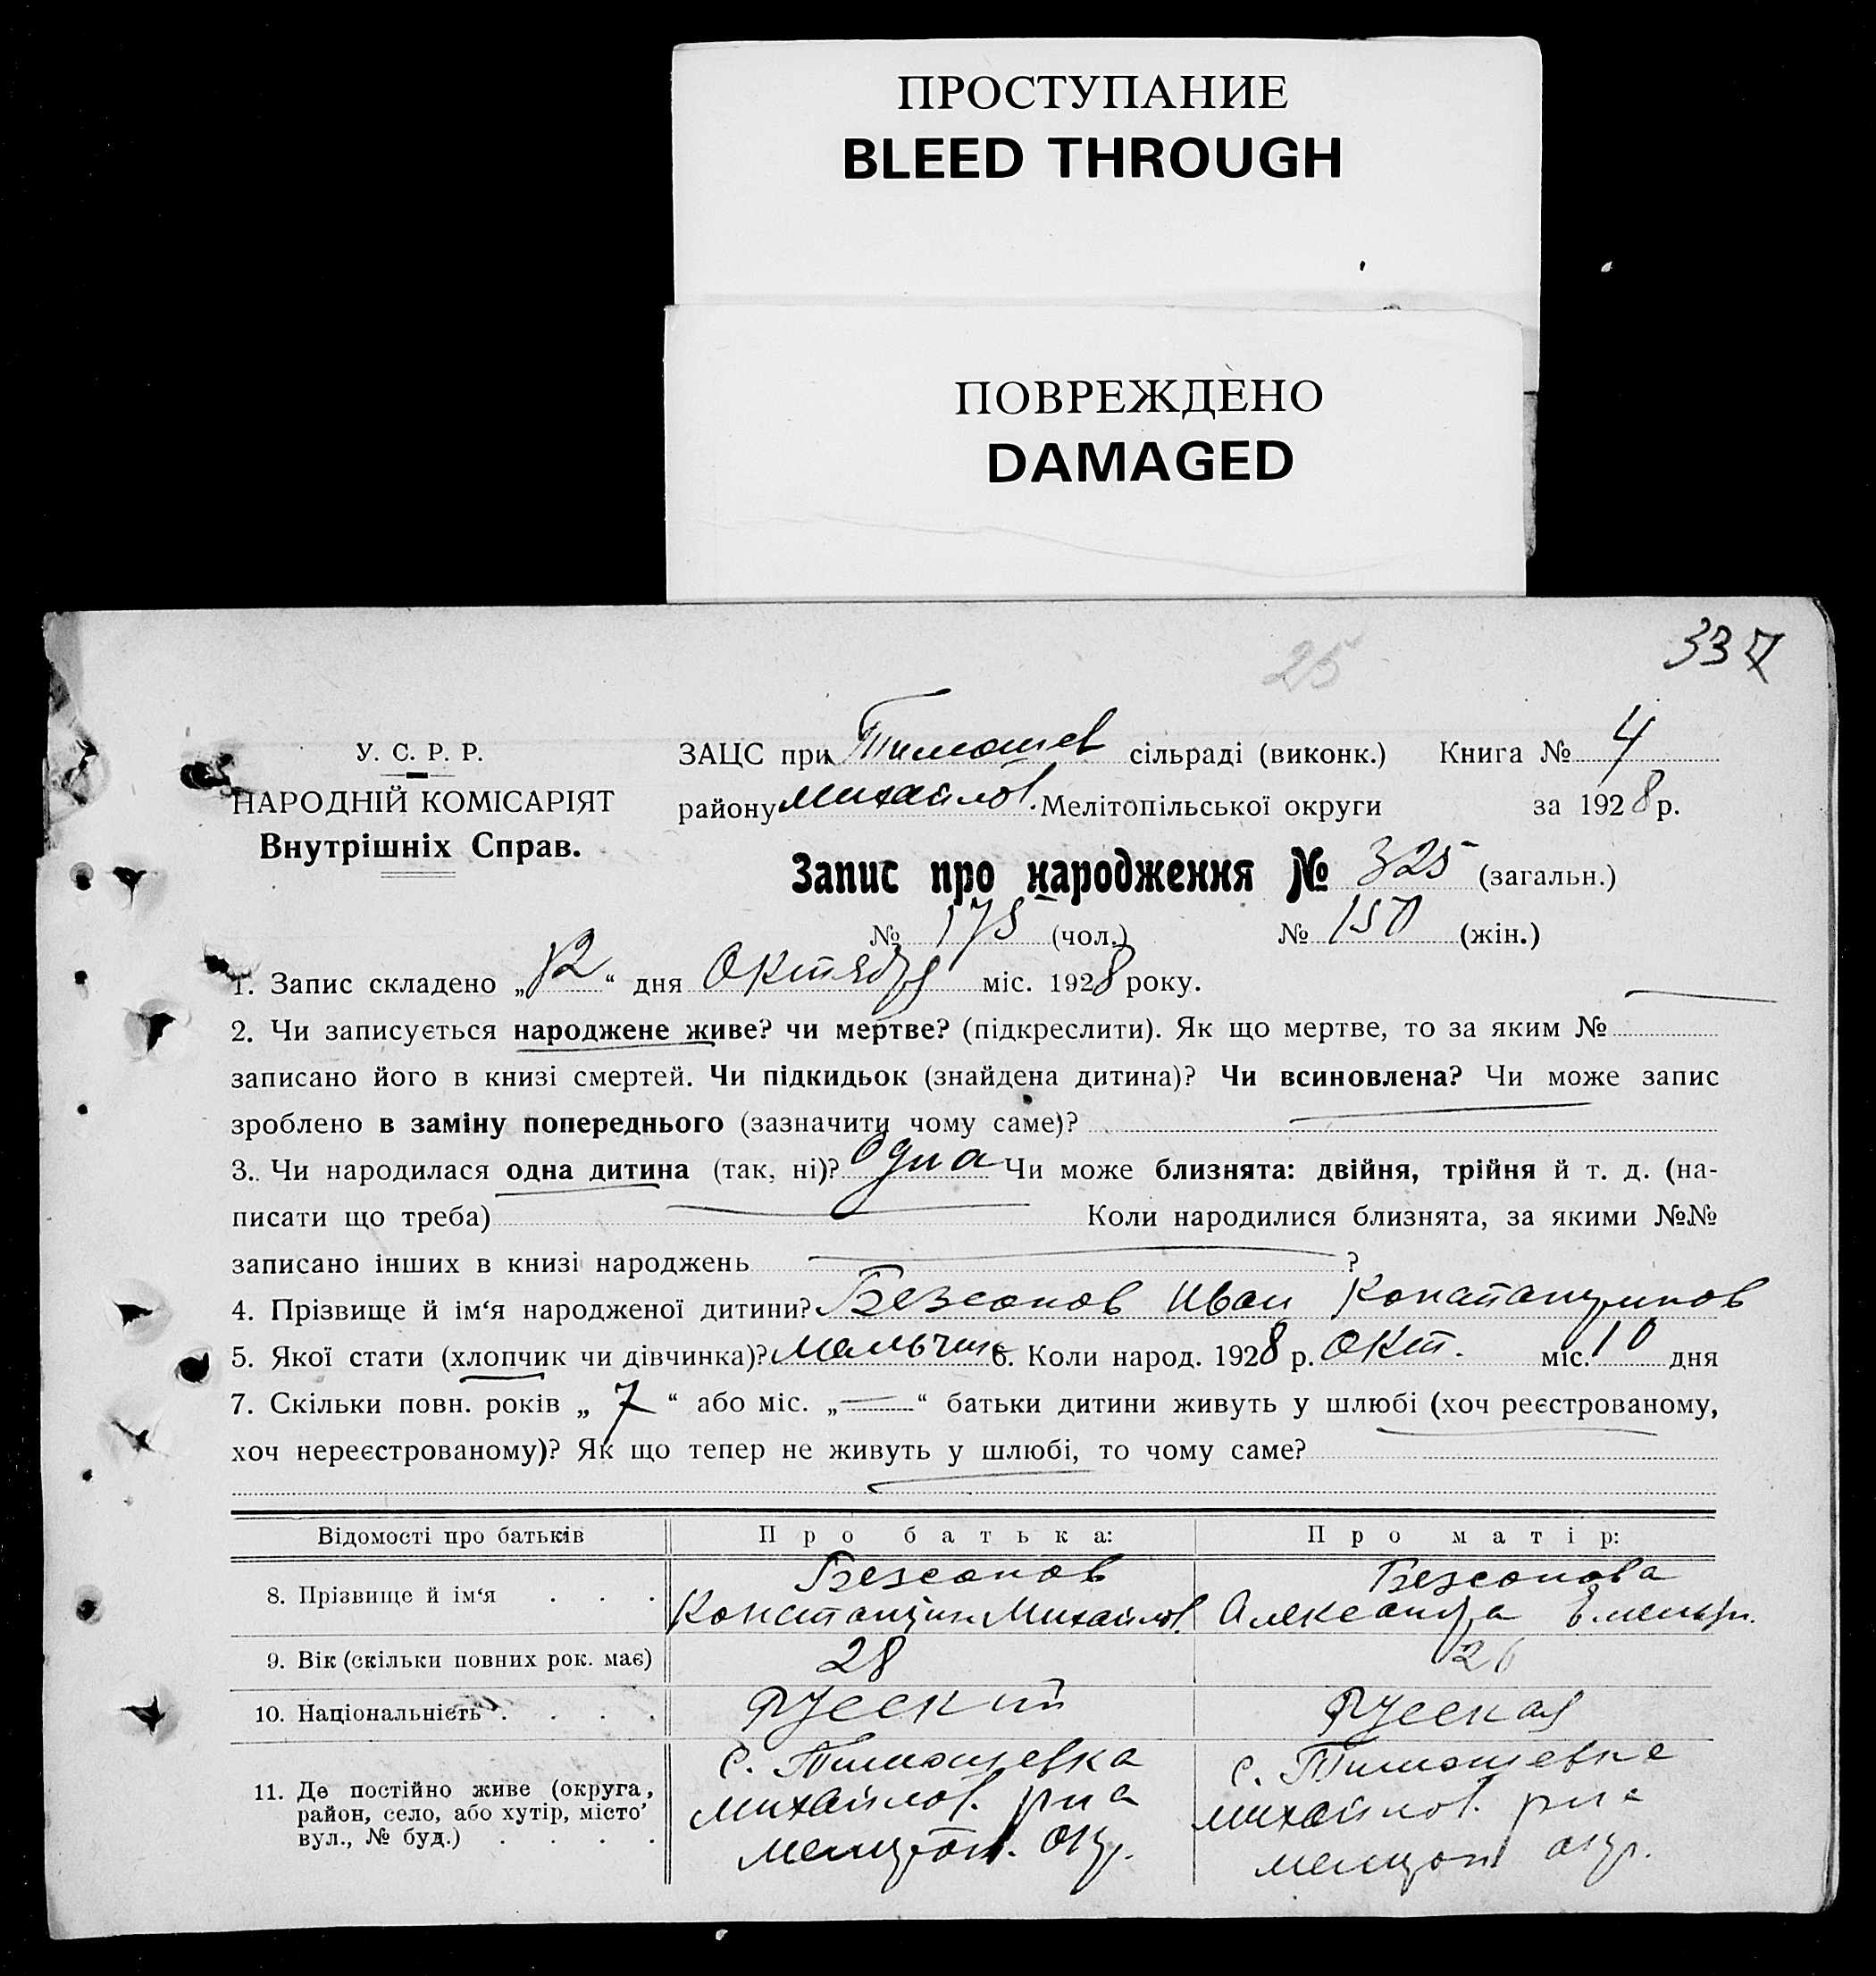 ПРОСТУПАНИЕ
BLEED THROUGH
ПОВРЕЖДЕНО
DAMAGED
25
337
У. С. Р. Р.
НАРОДНІЙ КОМІСАРІЯТ
Внутрішніх Справ.
ЗАЦС при Тимошев сільраді (виконк.) Книга № 4
району Михайлов. Мелітопільської округи за 1928 р.
Запис про народження № 325 (загальн.)
№ 175 (чол.) № 150 (жін.)
1. Запис складено „12“ дня Октября міс. 1928 року.
2. Чи записується народжене живе? чи мертве? (підкреслити). Як що мертве, то за яким №
записано його в книзі смертей. Чи підкидьок (знайдена дитина)? Чи всиновлена? Чи може запис
зроблено в заміну попереднього (зазначити чому саме)?
3. Чи народилася одна дитина (так, ні)? одна Чи може близнята: двійня, трійня й т. д. (на-
писати що треба) Коли народилися близнята, за якими №№
записано інших в книзі народжень ?
4. Прізвище й ім‘я народженої дитини? Безсонов Иван Константинов
5. Якої стати (хлопчик чи дівчинка)? мальчик 6. Коли народ. 1928 р. Окт. міс. 10 дня
7. Скільки повн. років „ 7 “ або міс. „—“ батьки дитини живуть у шлюбі (хоч реєстрованому,
хоч нереєстрованому)? Як що тепер не живуть у шлюбі, то чому саме?
Відомості про батьків Про батька: Про матір:
8. Прізвище й ім‘я . . . Безсонов Константин Михайлов. Безсонова Александра
9. Вік (скільки повних рок. має) 28 26
10. Національність . . . . Русский Русская
11. Де постійно живе (округа, район, село, або хутір, місто вул., № буд.) . . . .
с. Тимошевка
Михайлов. рна
Мелитоп. окр.
с. Тимошевка
Михайлов. рна
Мелитоп окр.